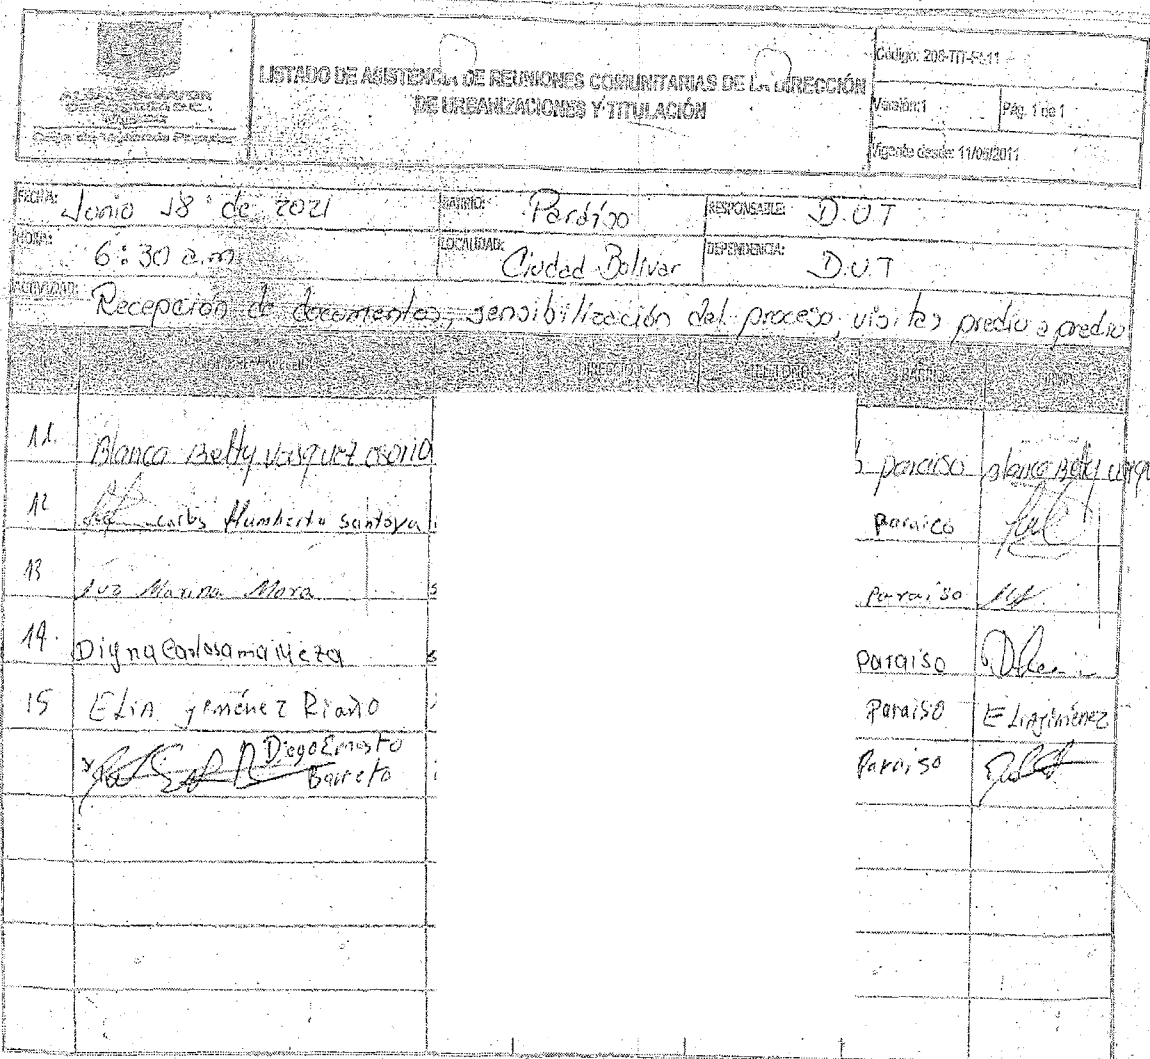 LISTADO DE ASISTENCIA DE REUNIONES COMUNITARIAS DE LA DIRECCIÓN
DE URBANIZACIONES Y TITULACIÓN
Código: 208-TIT-Ft-11
Versión:1 Pág. 1 de 1
Vigente desde: 11/05/2011
FECHA: Junio 18 de 2021 BARRIO: Paraíso RESPONSABLE: D.U.T
HORA: 6:30 a.m LOCALIDAD: Ciudad Bolívar DEPENDENCIA: D.U.T
ACTIVIDAD: Recepción de documentos, sensibilización del proceso, visitas predio a predio
DIRECCIÓN TELÉFONO BARRIO FIRMA
11. Blanca Betty vasquez osorio paraiso blanca Betty
12 carlos Humberto Santoya paraico
13 Luz Marina Mora Paraiso
14. Digna Carlosama Meza Paraiso
15 Elin jiménez Riaño Paraiso Elinjiménez
Diego Ernesto
Barreto Paraiso